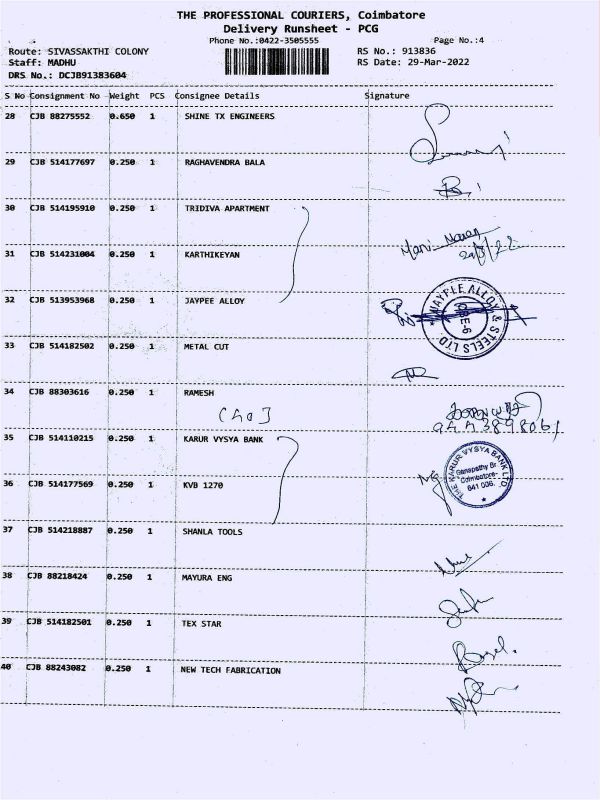 THE PROFESSIONAL COURIERS, Coimbatore
Delivery Runsheet - PCG
Phone No.:0422-3505555 Page No.:4
Route: SIVASSAKTHI COLONY RS No.: 913836
Staff: MADHU RS Date: 29-Mar-2022
DRS No.: DCJB91383604
S No Consignment No Weight PCS Consignee Details Signature
28 CJB 88275552 0.650 1 SHINE TX ENGINEERS
29 CJB 514177697 0.250 1 RAGHAVENDRA BALA
30 CJB 514195910 0.250 1 TRIDIVA APARTMENT
31 CJB 514231004 0.250 1 KARTHIKEYAN
32 CJB 513953968 0.250 1 JAYPEE ALLOY
ALLOY & STEELS LTD.
CBE-6
33 CJB 514182502 0.250 1 METAL CUT
34 CJB 88303616 0.250 1 RAMESH
35 CJB 514110215 0.250 1 KARUR VYSYA BANK
THE KARUR VYSYA BANK LTD.
Ganapathy Br.
Coimbatore-
641 006.
36 CJB 514177569 0.250 1 KVB 1270
37 CJB 514218887 0.250 1 SHANLA TOOLS
38 CJB 88218424 0.250 1 MAYURA ENG
39 CJB 514182501 0.250 1 TEX STAR
40 CJB 88243082 0.250 1 NEW TECH FABRICATION